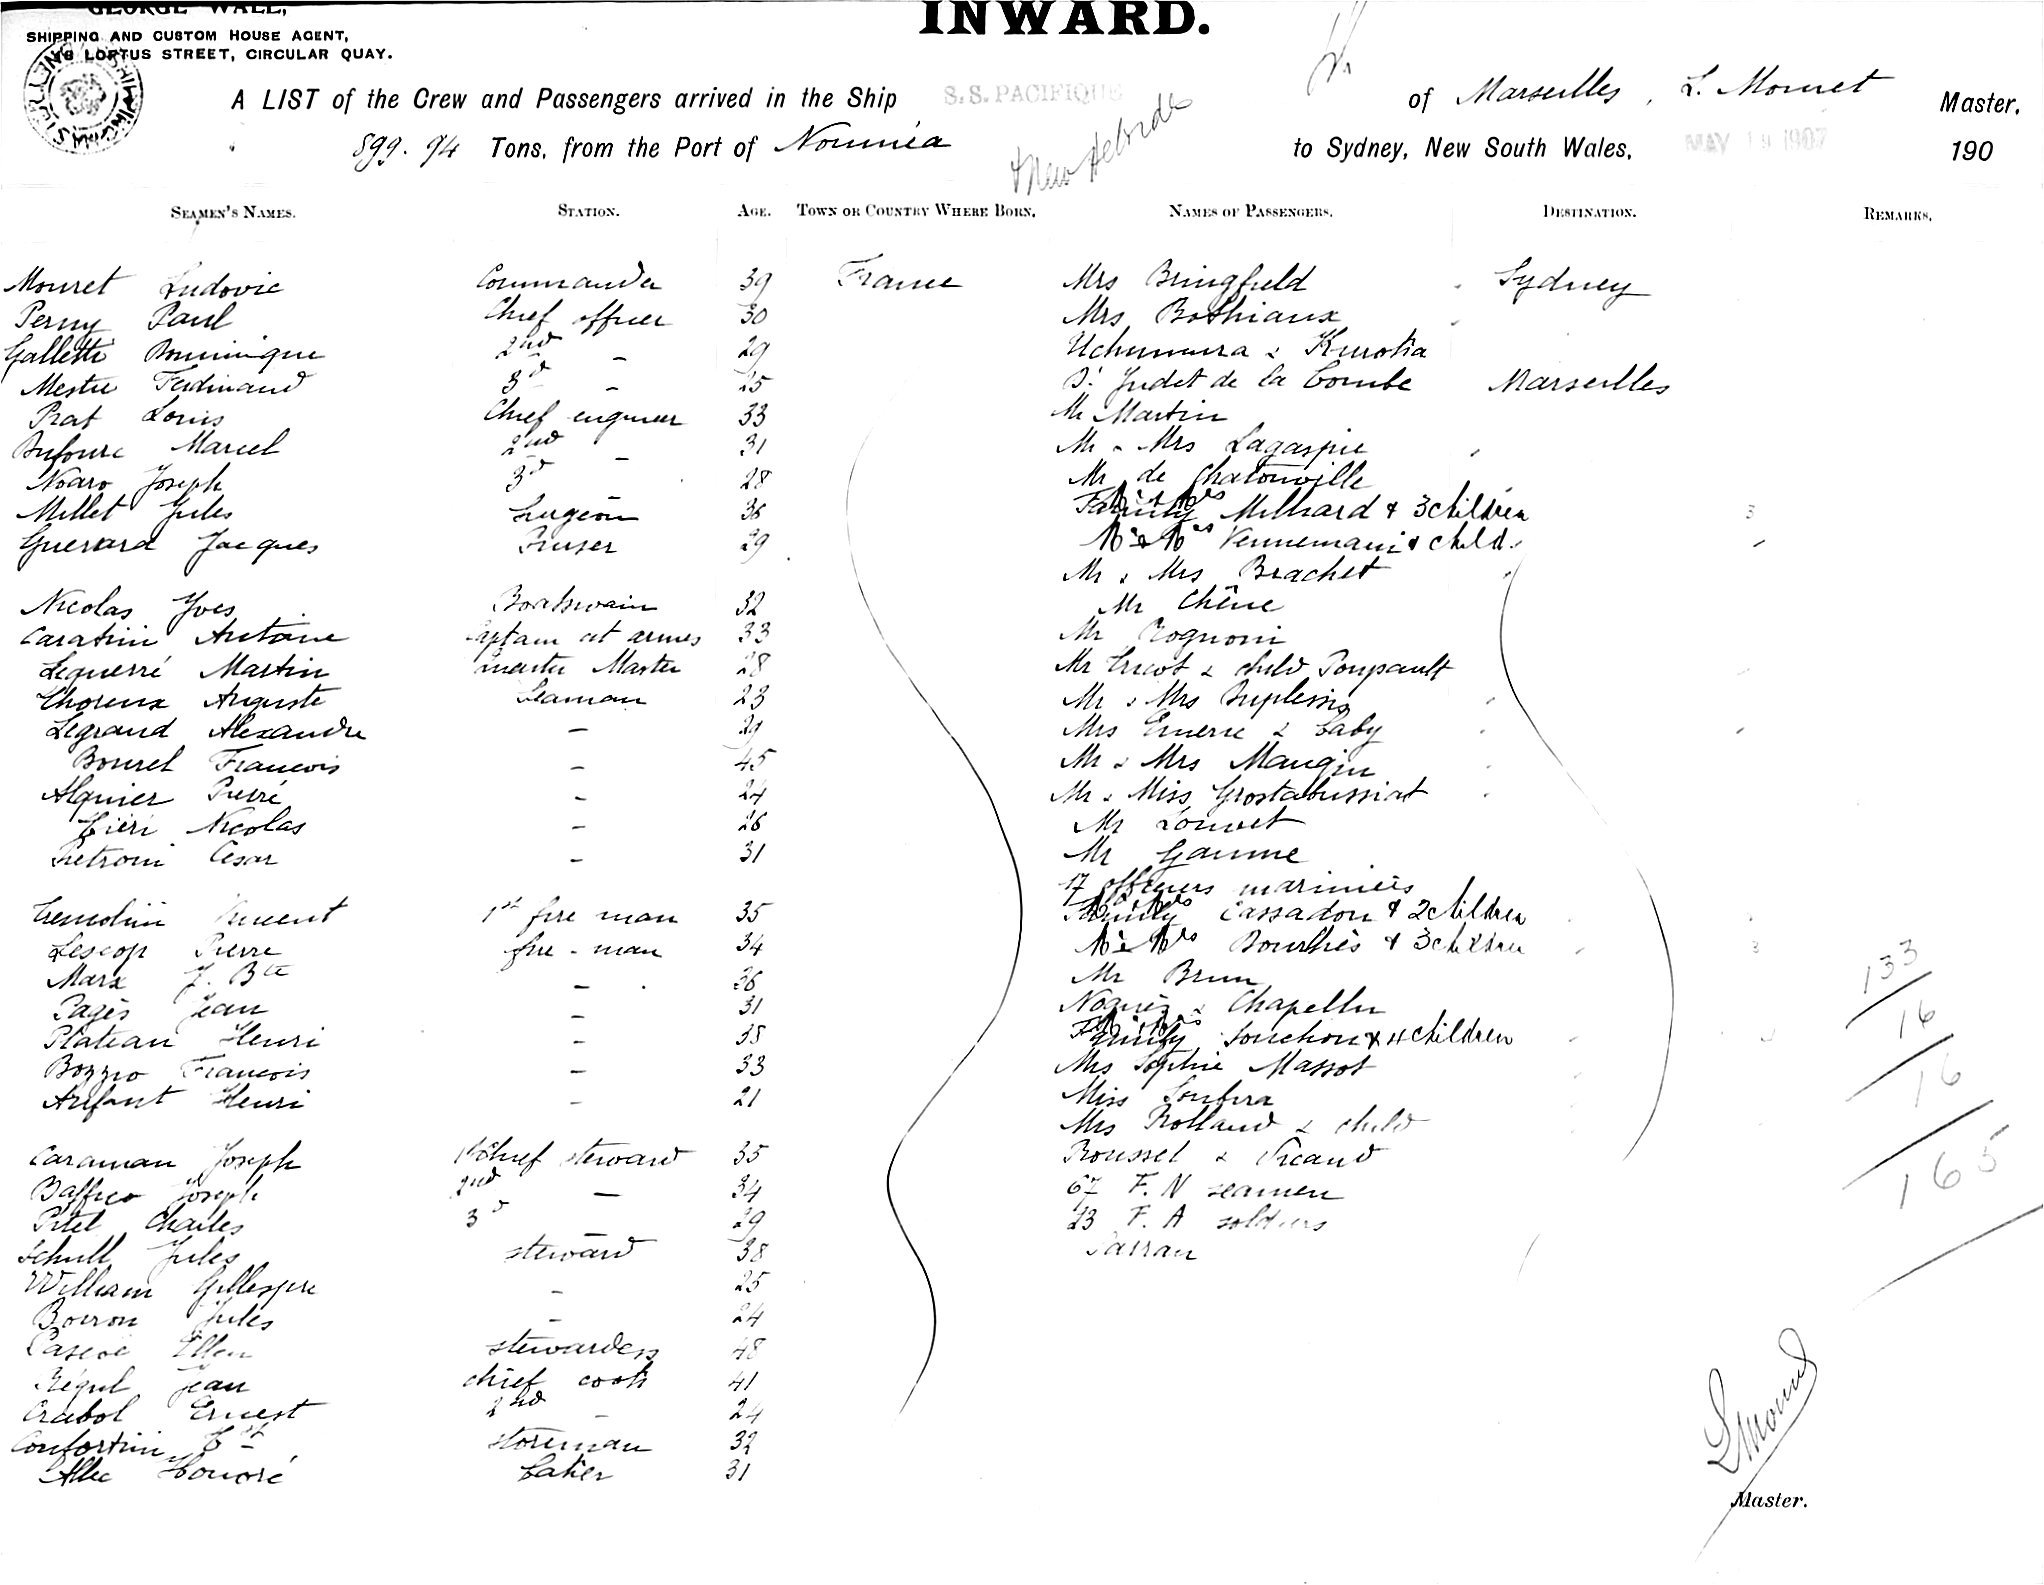 GEORGE WALL,
SHIPPING AND CUSTOM HOUSE AGENT,
LOFTUS STREET, CIRCULAR QUAY.
INWARD.
A LIST of the Crew and Passengers arrived in the Ship S.S. PACIFIQUE of Marseilles, L. Mouret Master,
899.94 Tons, from the Port of Nouméa & New Hebrides to Sydney, New South Wales, MAY 19 1907 190
SEAMEN'S NAMES. STATION. AGE. TOWN OR COUNTRY WHERE BORN.
Mouret Ludovic Commander 39 France
Perny Paul Chief officer 30
Galletti Dominique 2nd - 29
Mestre Ferdinand 3d - 25
Prat Louis Chief engineer 33
Dufourc Marcel 2nd - 31
Noaro Joseph 3d 28
Millet Jules Surgeon 36
Guerard Jacques Purser 29
Nicolas Yves Boatswain 32
Caratini Antoine Captain at armes 33
Leguerré Martin Quarter Master 28
Thoreux Auguste Seaman 23
Legrand Alexandre - 29
Bourel Francois - 45
Alquier Pierre - 24
Fieri Nicolas - 26
Pietroni Cesar - 31
Tremolini Vincent 1st fire man 35
Lescop Pierre fire-man 34
Marx J. Bte - 36
Pagès Jean - 31
Plateau Henri - 38
Bozzio Francois - 33
Anfant Henri - 21
Caraman Joseph 1st Chief steward 35
Baffico Joseph 2nd - 34
Pitel Charles 3d - 29
Schull Jules steward 38
William Gillespie - 25
Boiron Jules - 24
Pascoe Ellen stewardess 48
Régul Jean chief cook 41
Crabol Ernest 2nd - 24
Confortini storeman 32
Allec Honoré baker 31
NAMES OF PASSENGERS. DESTINATION. REMARKS.
Mrs Bringfield Sydney
Mrs Bothiaux
Uchumura & Kurotia
Dr Judet de la Combe Marseilles
Mr Martin
Mr & Mrs Lagaspie
Mr de Chatonville
Mr & Mrs Milliard & 3 children 3
Mr & Mrs Vennemani & child.
Mr & Mrs Brachet
Mr Chêne
Mr Rognoni
Mr Tricot & child Poupault
Mr & Mrs Duplessis
Mrs Emeric & baby
Mr & Mrs Maugin
Mr & Miss Grostabussiat
Mr Louvet
Mr Gaume
17 officiers mariniers
Mr & Mrs Cassadou & 2 children
Mr & Mrs Bourhis & 3 children 3
Mr Brun
Noguès & Chapellu
Mr & Mrs Souchon & 4 children
Mrs Sophie Massot
Miss Soubira
Mrs Rolland & child
Roussel & Picaud
67 F. N seamen
23 F. A soldiers
133
16
16
165
L Mouret
Master.